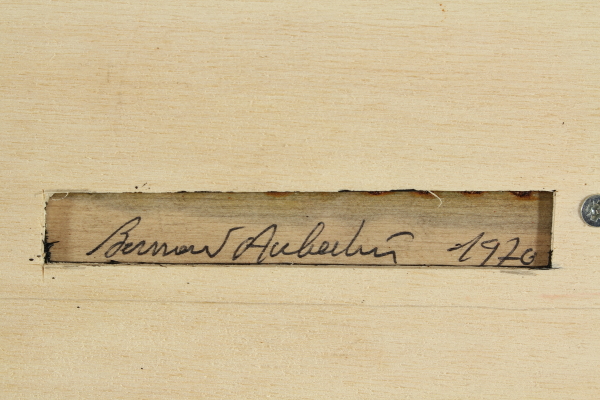 Bernard Aubertin 1970